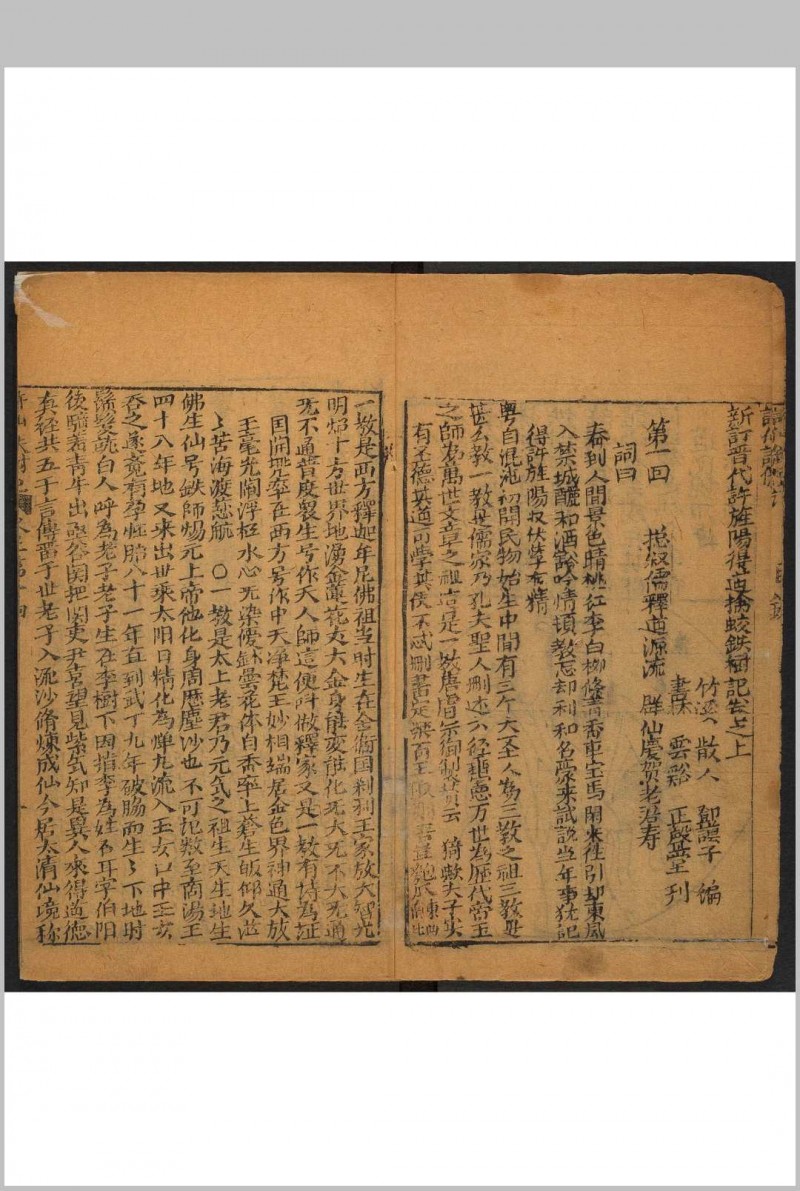 新訂晋代許旌陽得道擒蛟鉄樹記卷之上
竹溪散人 鄧氵子 編
書林 雲谿 正 堂 刊
第一回 総叙儒釋道源流 群仙慶賀老君寿
詞曰
春到人間景色晴桃紅李白柳條青香車宝馬閑來往引却東風
入禁城酾和酒豁吟情頓教忘却利和名豪来試説当年事犹記
得許旌陽収伏孽妖精
粤自混沌初開民物始生中間有三个大圣人為三教之祖三教是
甚么教一教是儒家乃孔夫聖人刪述六經垂憲万世為歴代帝王
之師為萬世文章之祖這是一教唐 宗御製賛云 猗歟夫子实
有圣德其道可學其儀不忒刪書定樂百王取則吾豈匏瓜東西
一教是西方釋迦牟尼佛祖当时生在舍衞国刹利王家放大智光
明炤十方世界地湧金蓮花丈六金身能变能化无大无不大无通
无不通普度衆生号作天人師這便叫做釋家又是一教有诗為証
国開兜率在西方号作中天净梵王妙相端居金色界神通大放
玉毫光閻浮 水心无染優鉢曇花体自香率上蒼生皈仰久茫
々苦海渡慈航 〇一教是太上老君乃元気之祖生天生地生
佛生仙号鉄師煬元上帝他化身周歴塵沙也不可記数至商湯王
四十八年地又来出世乘太阳日精化為弹丸流入玉女口中玉女
吞之遂竟有孕怀胎八十一年直到武丁九年破脇而生々下地时
鬚髮就白人呼為老子老子生在李樹下因指李為姓名耳字伯阳
後騎着青牛出函谷関把関吏尹喜望見紫気知是異人求得道德
真經共五千言傳留于世老子入流沙脩煉成仙今居太清仙境称